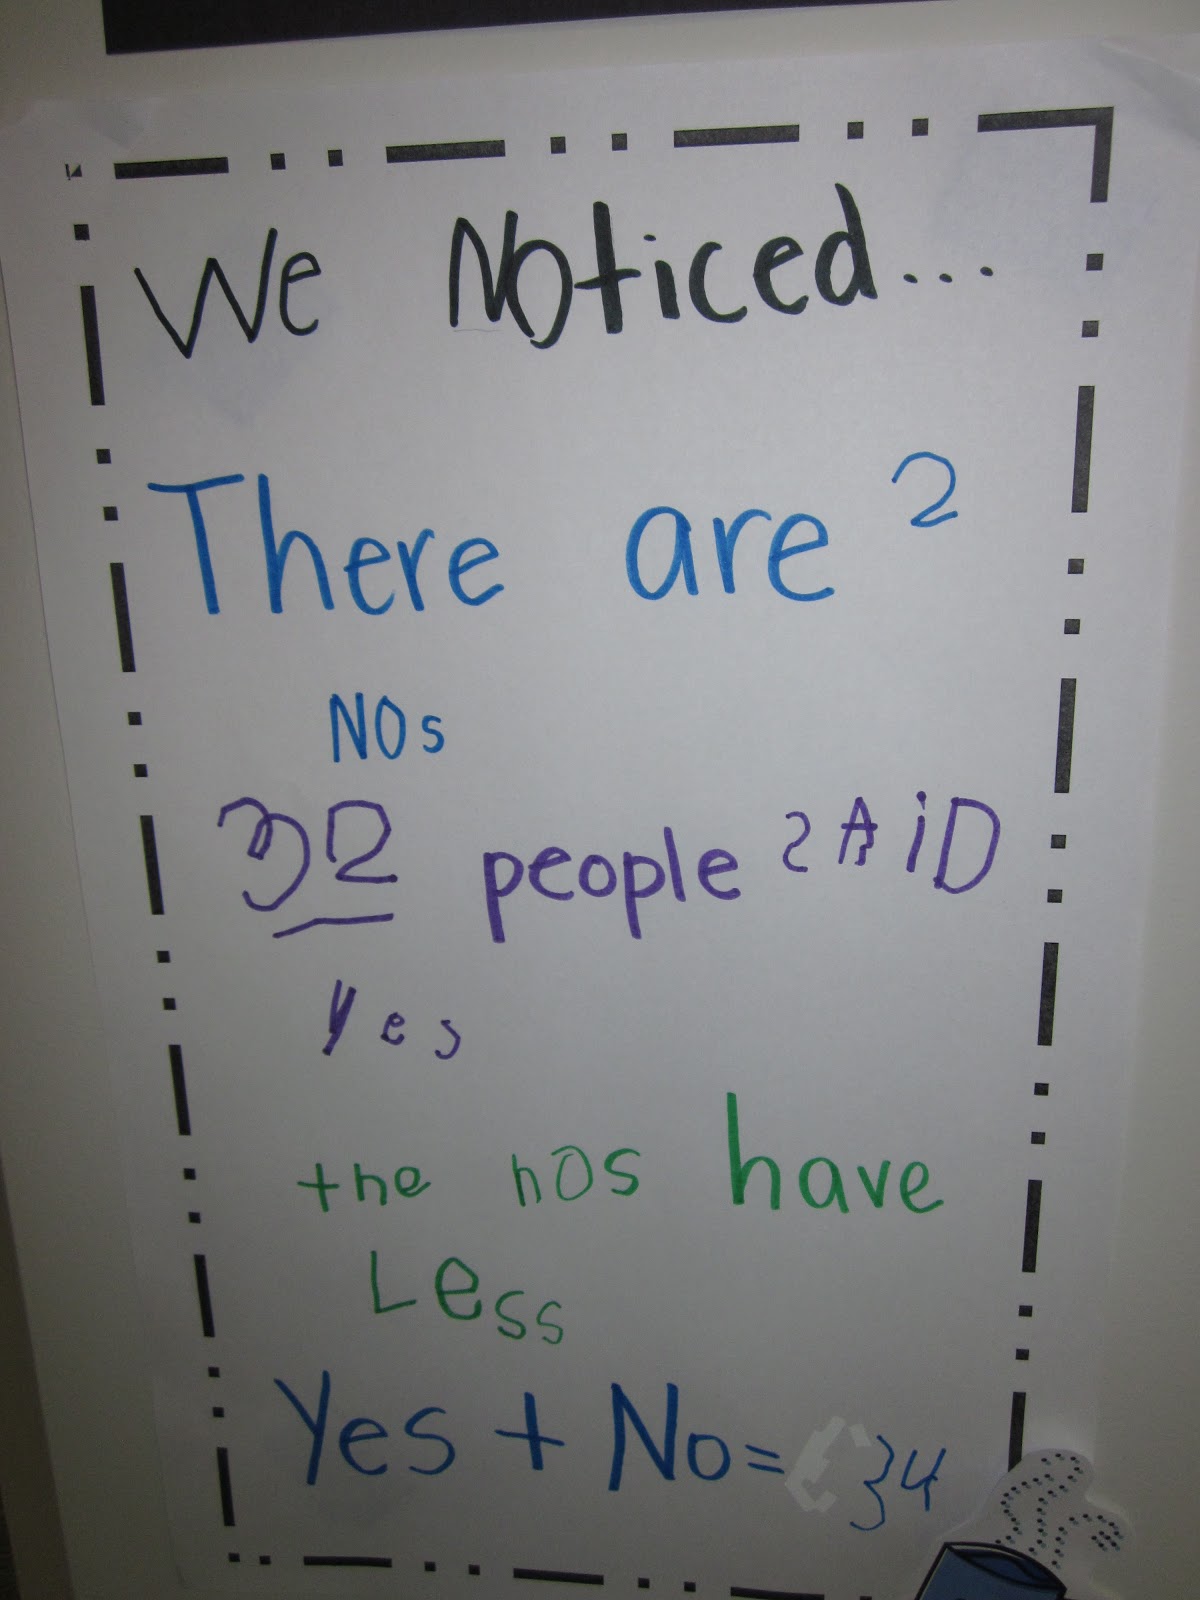 We Noticed...
There are 2
NOs
32 people sAiD
Yes
the nOs have
Less
Yes + No = 34